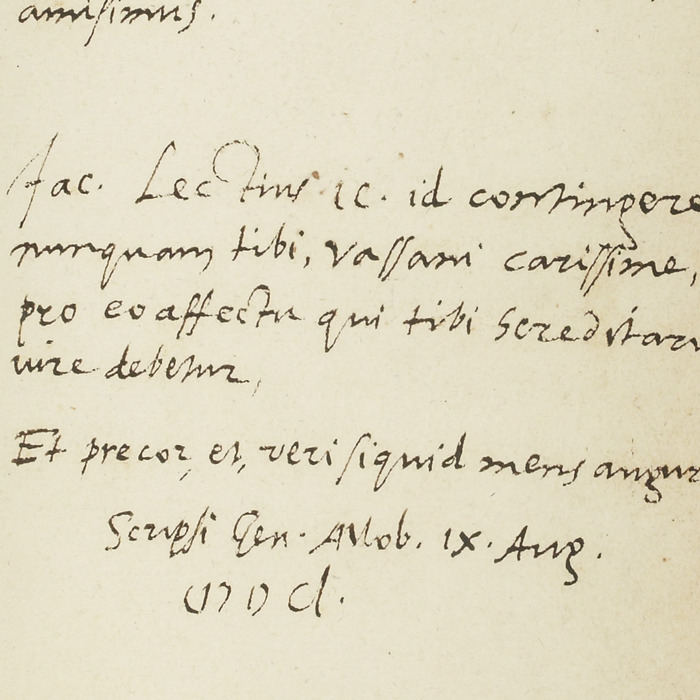 amisimus.
Jac. Lectius IC. id contingere
nunquam tibi, Vassani carissime,
pro eo affectu qui tibi hereditari
iure debetur,
Et precor, et, veri siquid mens augur
Scripsi Gen. Allob. IX. Aug.